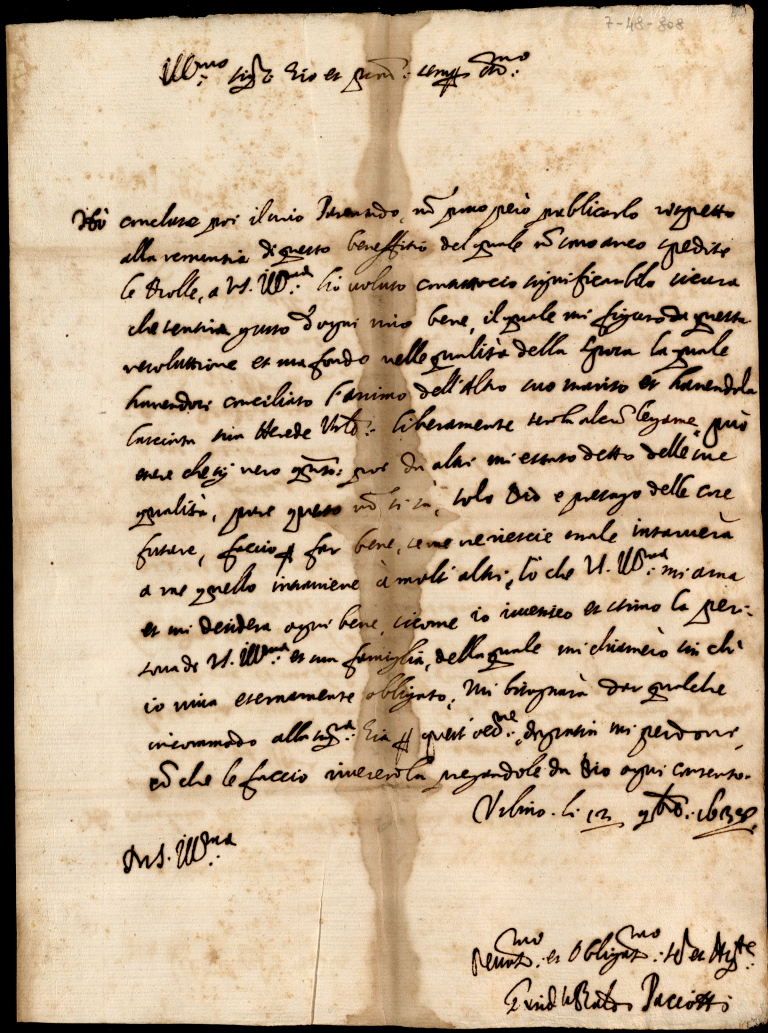 7-48-808
Ill.mo Sig.r Zio et
Hò concluso poi il mio Parentado, nõ posso però publicarlo rispetto
alla renuntia di questo benefitio del quale nõ sono anco spedite
le Bolle, a V.S. Ill.ma hò voluto significarlo sicura
che sentirà gusto d'ogni mio bene, il quale mi figuro da questa
resoluttione et ma fondo nelle qualità della sposa la quale
havendosi conciliato l'animo dell'Altro suo marito et havendola
lasciata sua Herede liberamente senz'alcũ legame, può
essere che sij vero da altri mi è stato detto delle sue
qualità, pure questo nõ si sà, solo Dio è presago delle cose
future, faccio per far bene, se me ne riescie male intraverà
a me quello intraviene à molti altri, sò che V.S. Ill.ma mi ama
et mi desidera ogni bene, sicome io riverisco et stimo la per:
sona di V.S. Ill.ma et sua famiglia, della quale mi chiamerò sin ch'
io viva eternamente obbligato, Mi bisognarà dar qualche
incommodo alla Sig.ra Zia di gratia mi perdoni,
cõ che le faccio riverenza pregandole da Dio ogni contento.
Urbino. li 12 9bre. 1638.
Di V.S. Ill.ma
et Obligat.mo
Paciotti